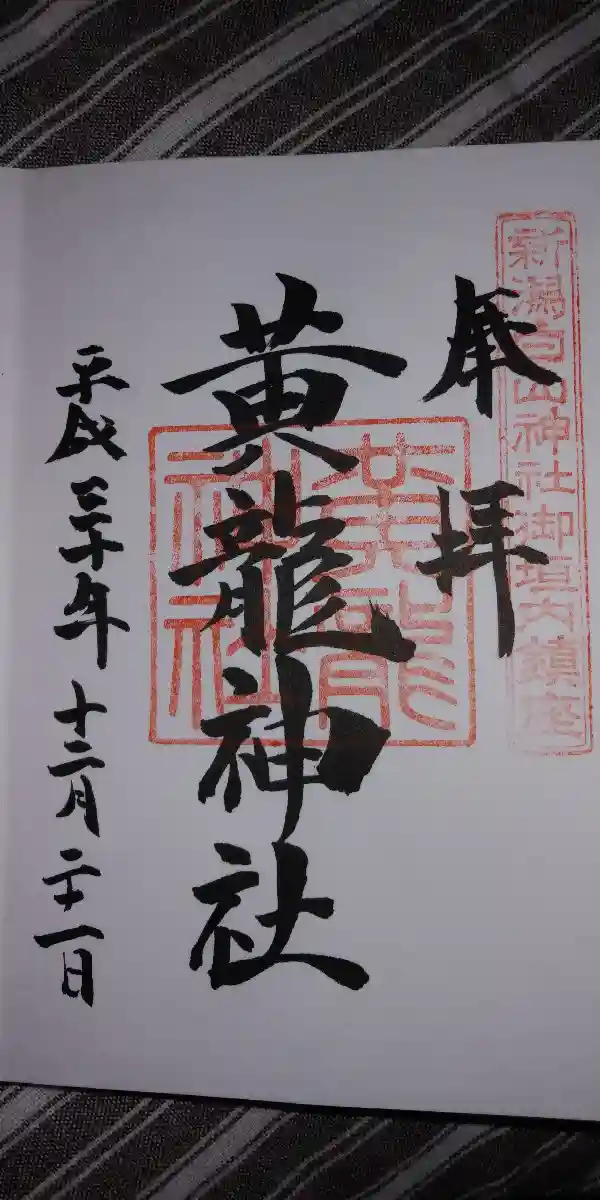 新潟白山神社御垣内鎮座
奉拝
黄龍神社
黄龍
神社
平成三十年十二月二十一日